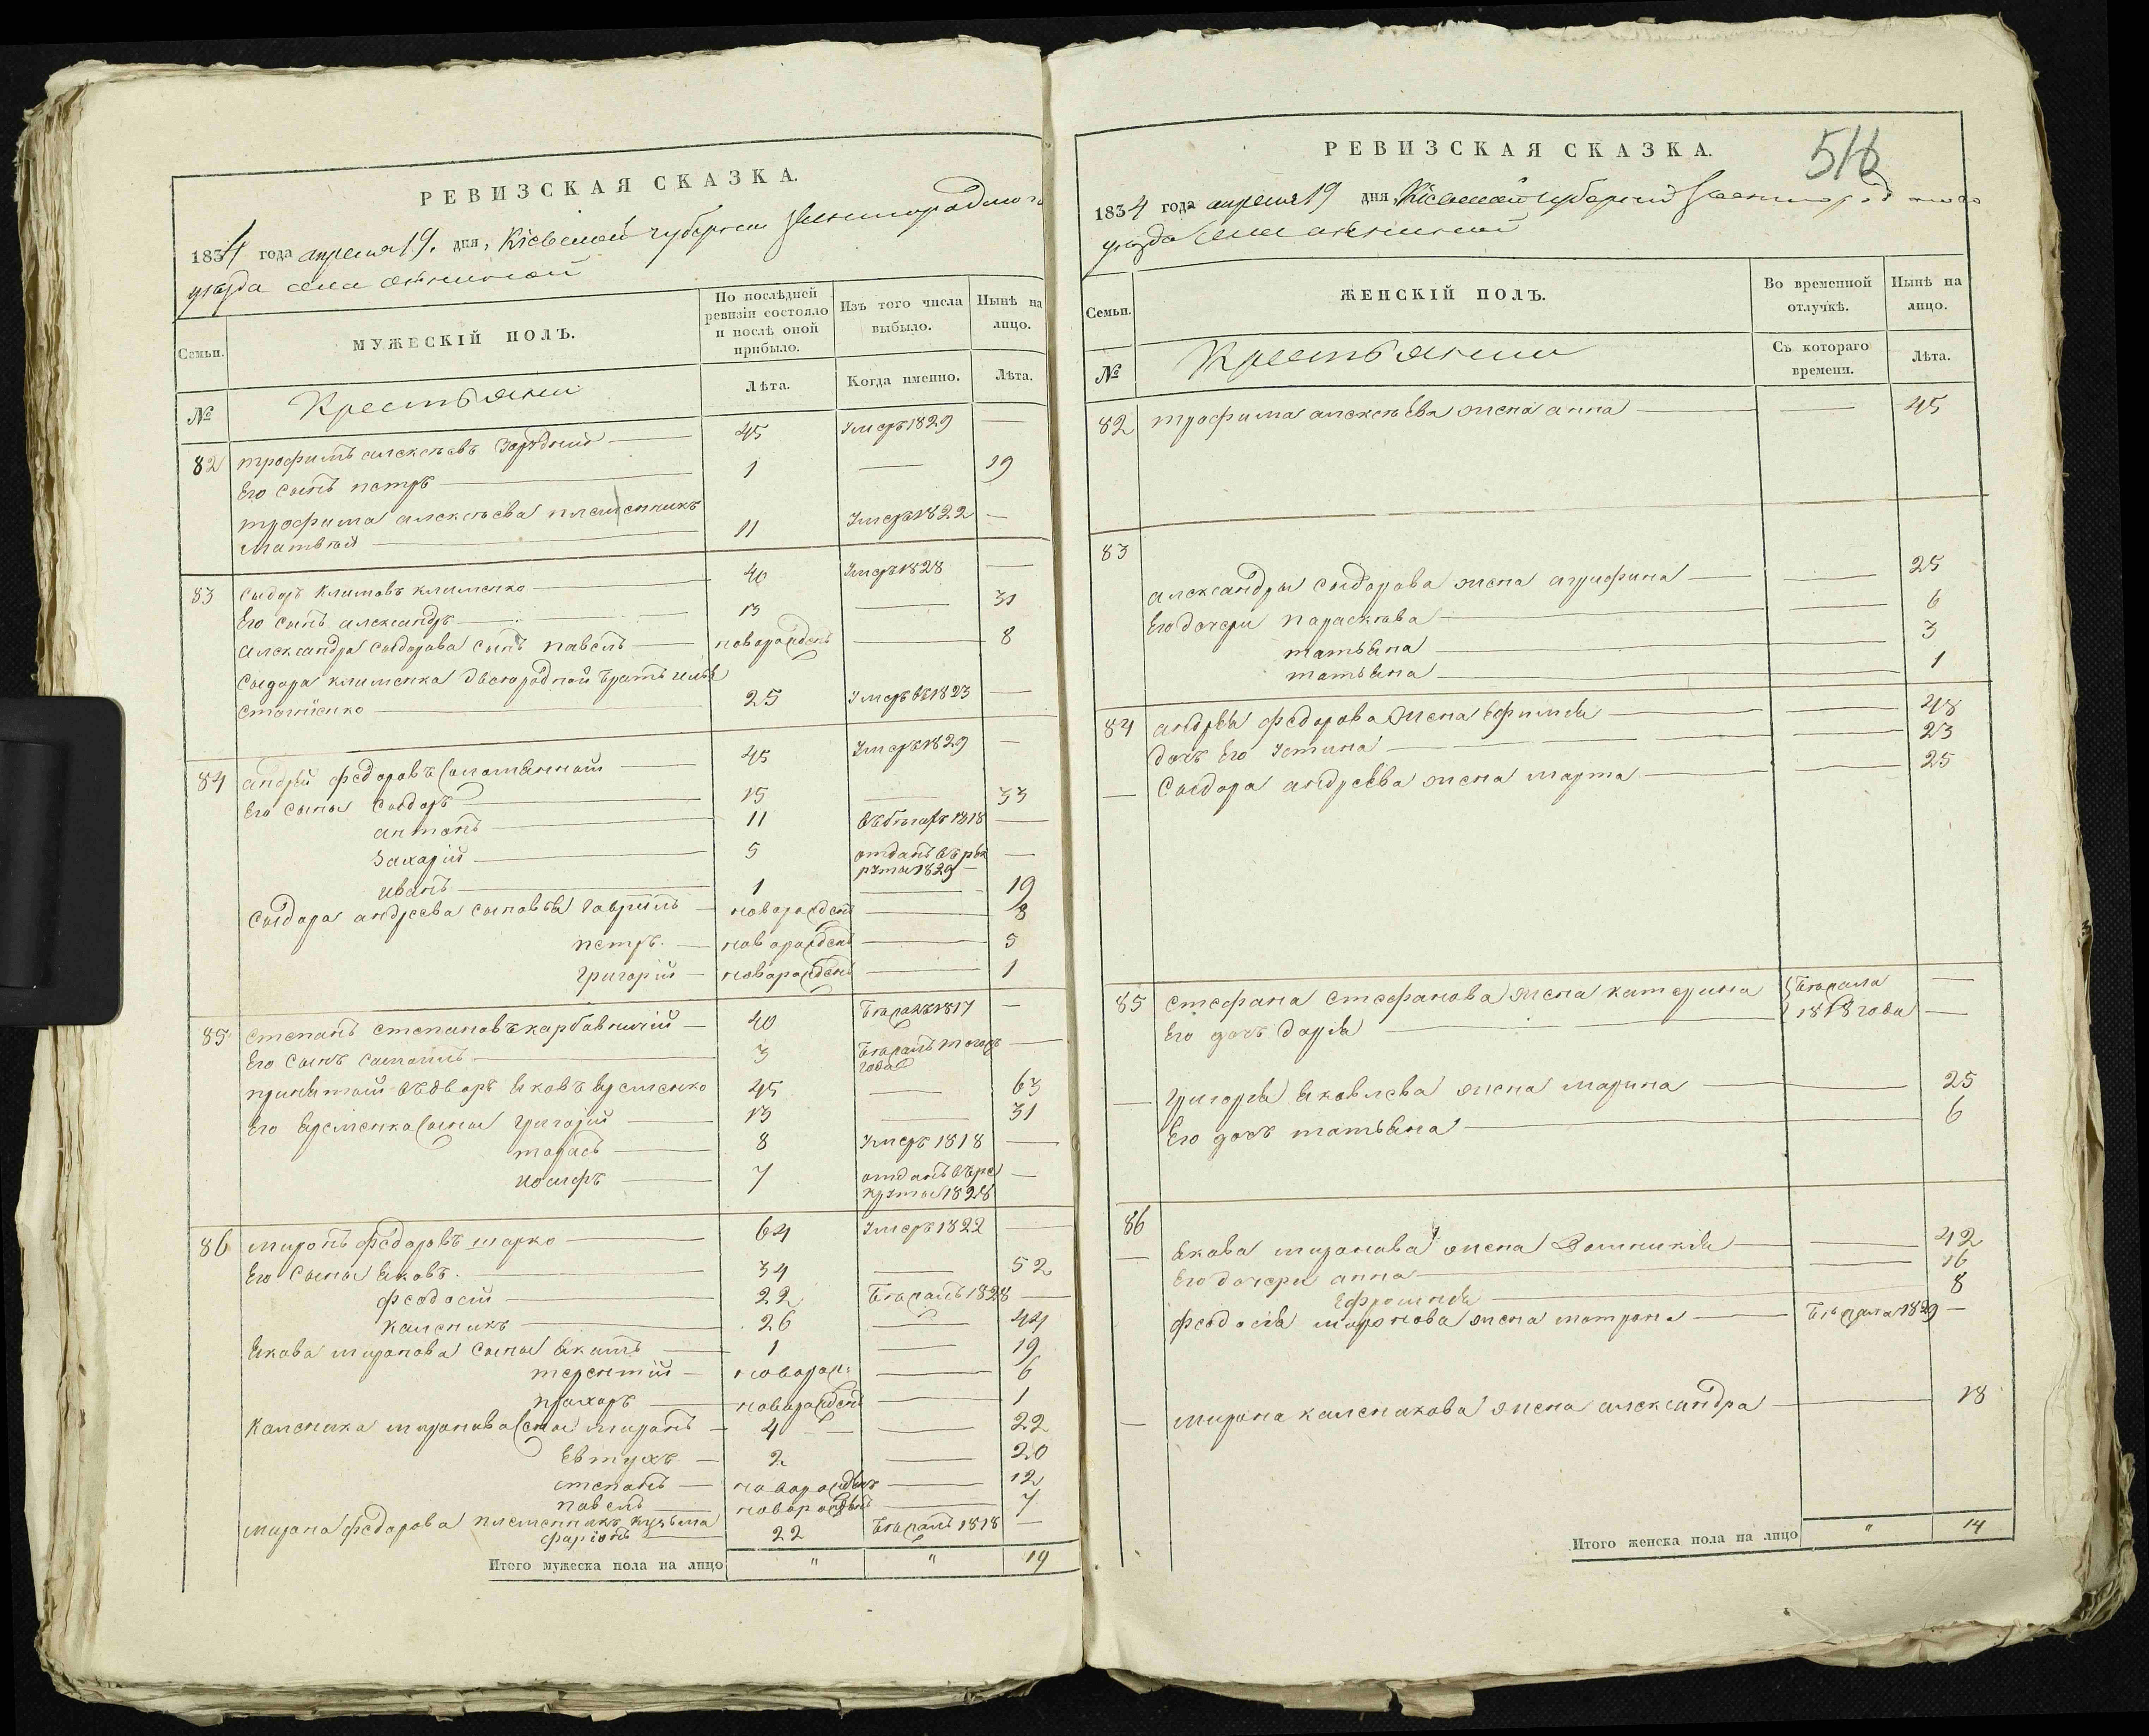 РЕВИЗСКАЯ СКАЗКА.
1834 года апреля 19. дня, Кіевской губерніи Звенигородского
уезда села
Семьи.
МУЖЕСКІЙ ПОЛЪ.
По послѣдней ревизіи состояло и послѣ оной прибыло.
Изъ того числа выбыло.
Нынѣ на лицо.
№
Крестьяни
Лѣта.
Когда именно.
Лѣта.
82 трофимъ алексѣевъ 45 Умеръ 1829 —
Его сынъ петръ — 1 — 19
трофима алексѣева племенникъ
матвѣй — 11 Умеръ 1822 —
83 сыдоръ климовъ клименко — 40 Умеръ 1828 —
Его сынъ александръ — 13 — 31
александра сыдорова сынъ павелъ — новорожденъ — 8
Сыдора клименка двоюродной братъ илья
— 25 Умеръ въ 1823 —
84 андрей федоровъ — 45 Умеръ 1829 —
Его сыны Сыдоръ — 15 — 33
антонъ — 11 въ бегахъ 1818 —
Захарій — 5 отданъ въ рек
руты 1829 —
иванъ — 1 — 19
Сыдора андреева сыновья гавріилъ — новорожденъ — 8
петръ. — новорожденъ — 5
григорій — новорожденъ — 1
85 степанъ степановъ карбовничій — 40 Бежалъ 1817 —
Его сынъ самойлъ — 3 Бежалъ того жъ
года —
принятой въ дворъ Яковъ Яременко 45 — 63
Его Яременка сыны григорій — 13 — 31
тарасъ — 8 Умеръ 1818 —
иосифъ — 7 отданъ въ ре
круты 1828 —
86 миронъ федоровъ шарко — 64 Умеръ 1822 —
Его сыны Яковъ. — 34 — 52
феодосій — 22 Бежалъ 1828 —
каленикъ — 26 — 44
Якова миронова сыны Якимъ — 1 — 19
терентій — новорож: — 6
прохоръ — новорожденъ — 1
Каленика миронова сыны миронъ — 4 — 22
Евтухъ — 2 — 20
степанъ — новорожденъ — 12
павелъ — новорожденъ — 7
мирона федорова племенникъ кузьма
фаріонъ — 22 Бежалъ 1818 —
Итого мужеска пола на лицо " " 19
516
РЕВИЗСКАЯ СКАЗКА.
1834 года апреля 19 дня, Кіевской губерніи Звенигородского
уезда села
Семьи.
ЖЕНСКІЙ ПОЛЪ.
Во временной отлучкѣ.
Нынѣ на лицо.
№
Крестьянки
Съ котораго времени.
Лѣта.
82 трофима алексѣева жена анна — — 45
83
александры сыдорова жена агрифина — — 25
Его дочери параскѣва — — 6
татьяна — 3
татьяна — 1
84 андрѣя федорова жена Ефимія — — 48
дочъ его Устина — — 23
— Сыдора андрѣева жена марта — — 25
85 стефана стефанова жена катерина Бежала —
Его дочъ дарія — 1818 года —
— григорія Яковлева жена марина — 25
Его дочъ татьяна — 6
86
— Якова миронова жена Домникія — — 42
Его дочери анна — — 16
Ефросинія — 8
феодосія миронова жена матрона — Бежала 1829 —
— мирона каленикова жена александра — 18
Итого женска пола на лицо " 14